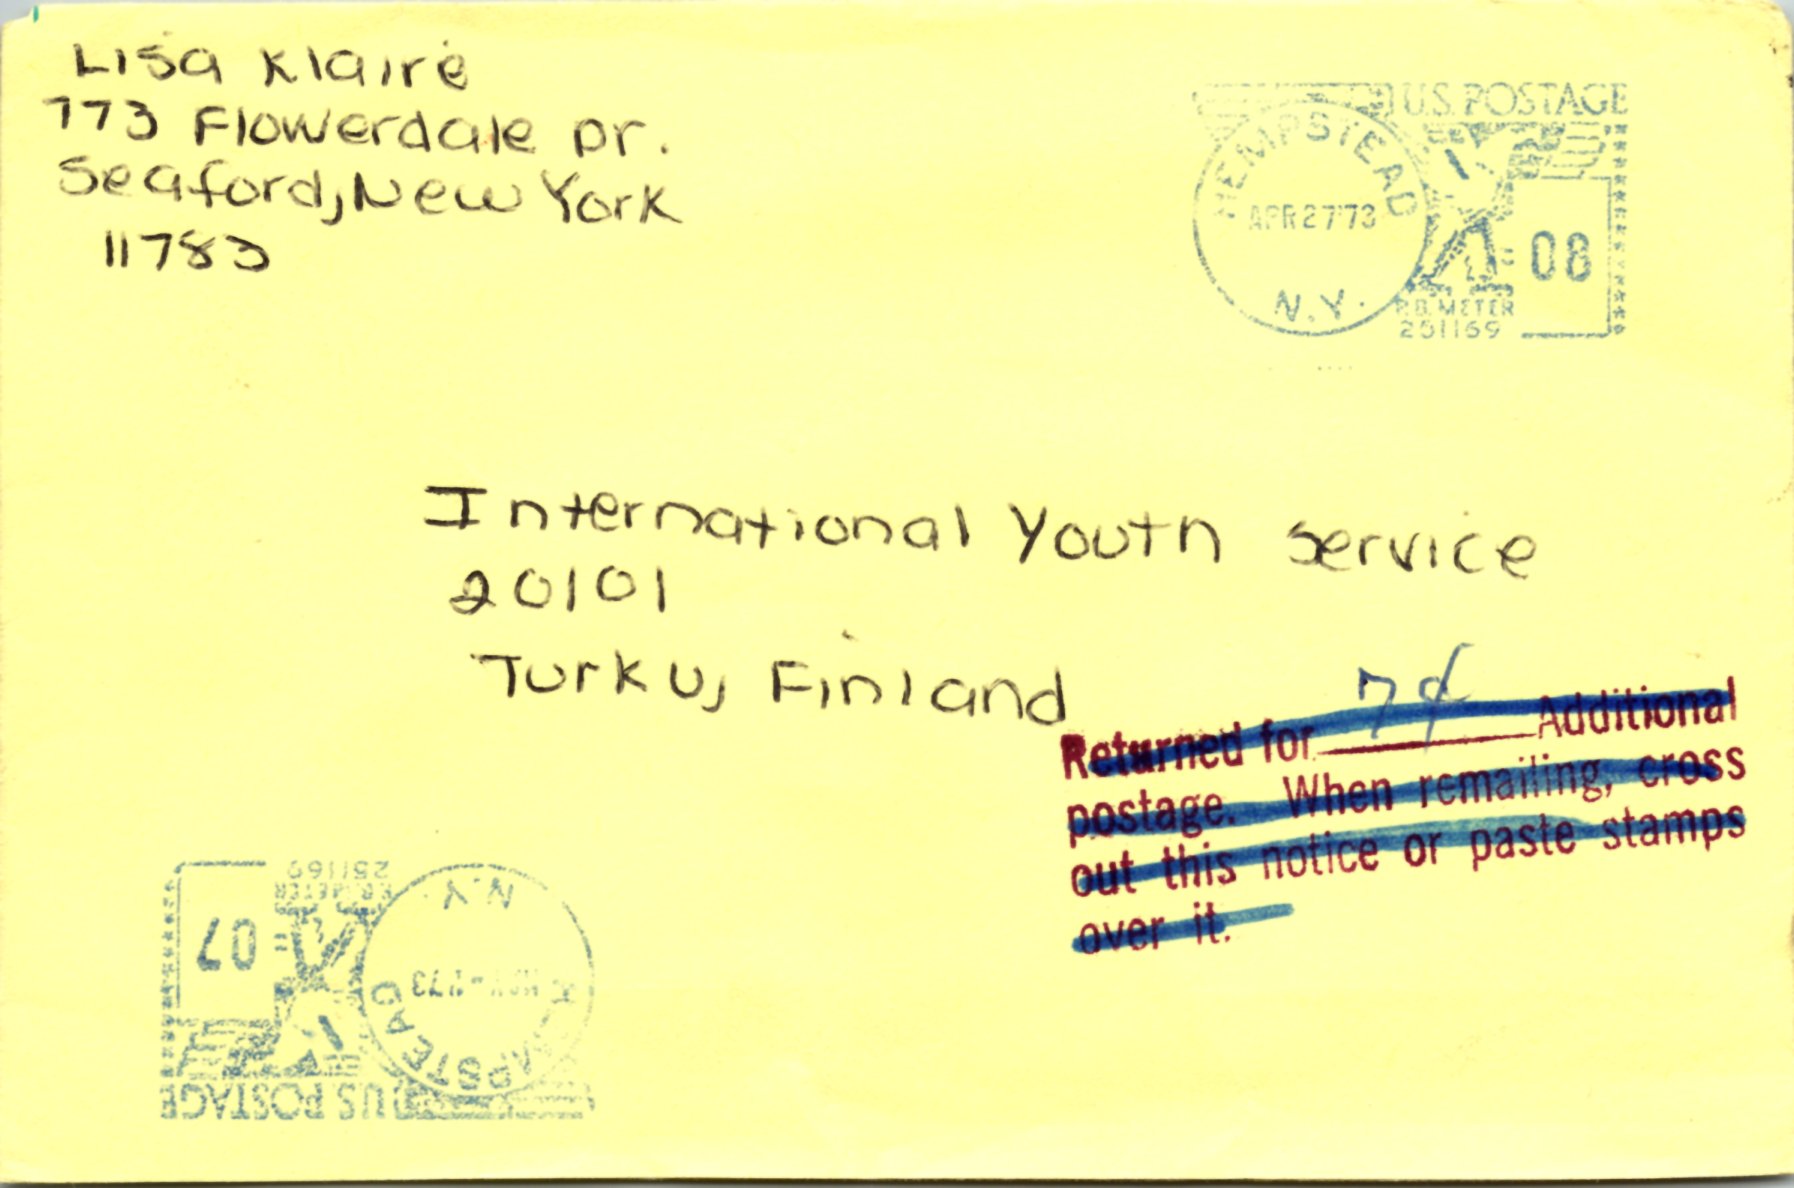 Lisa Klaire
773 Flowerdale Dr.
Seaford, New York
11783
U.S. POSTAGE
HEMPSTEAD
APR 27 '73
N.Y.
08
P.B. METER
251169
International Youth Service
20101
Turku, Finland
Returned for 7¢ Additional
postage. When remailing, cross
out this notice or paste stamps
over it.
251169
P.B. METER
N.Y.
07
'73
U.S. POSTAGE